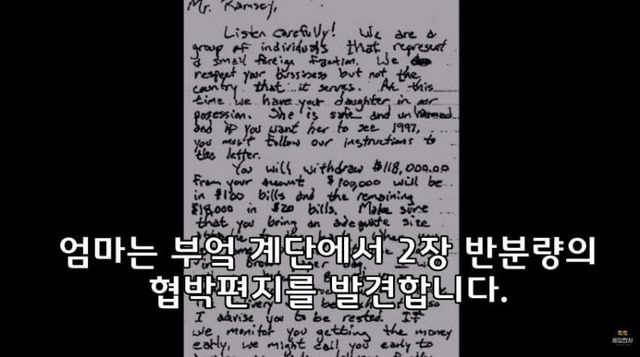 Mr. Ramsey,
Listen carefully! We are a
group of individuals that represent
a small foreign faction. We
respect your bussiness but not the
country that it serves. At this
time we have your daughter in our
posession. She is safe and unharmed
and if you want her to see 1997,
you must follow our instructions to
the letter.
You will withdraw $118,000.00
from your account $100,000 will be
in $100 bills and the remaining
$18,000 in $20 bills. Make sure
that you bring an adequate size
엄마는 부엌 계단에서 2장 반분량의
협박편지를 발견합니다.
I advise you to be rested. If
we monitor you getting the money
early, we might call you early to